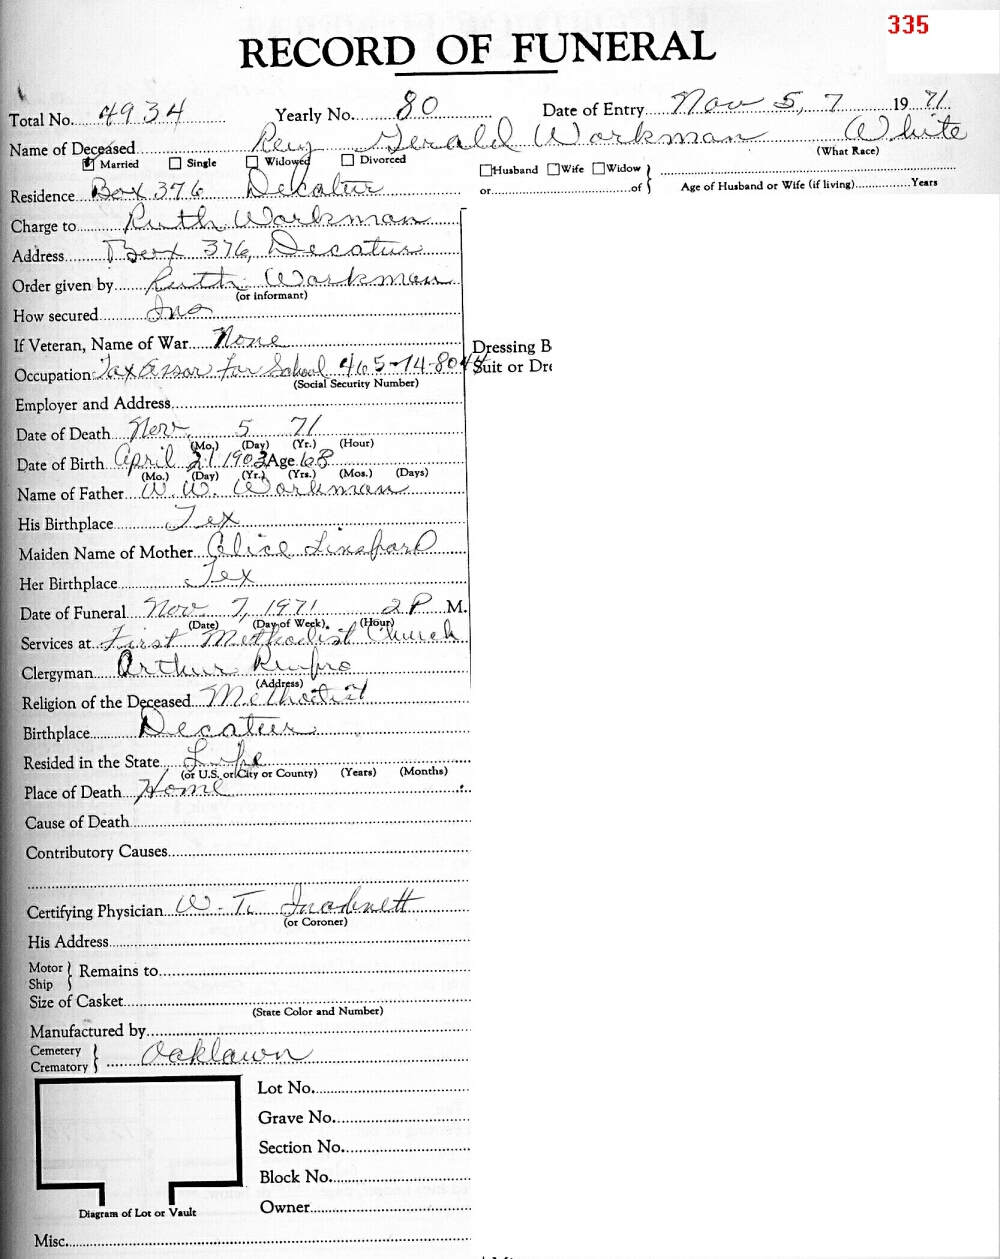 335
RECORD OF FUNERAL
Total No. 4934 Yearly No. 80 Date of Entry Nov 5, 7 19 71
Name of Deceased Gerald Workman White
(What Race)
Married Single Widowed Divorced
Husband Wife Widow
or of Age of Husband or Wife (if living) Years
Residence Box 376 Decatur
Charge to Ruth Workman
Address Box 376, Decatur
Order given by Ruth Workman
(or informant)
How secured Ins
If Veteran, Name of War None
Dressing B
Occupation For School 465-14-8044
Suit or Dre
(Social Security Number)
Employer and Address
Date of Death Nov 5 71
(Mo.) (Day) (Yr.) (Hour)
Date of Birth April 21 1903 Age 68
(Mo.) (Day) (Yr.) (Yrs.) (Mos.) (Days)
Name of Father W. W. Workman
His Birthplace Tex
Maiden Name of Mother Alice
Her Birthplace Tex
Date of Funeral Nov 7, 1971 2 P M.
(Date) (Day of Week) (Hour)
Services at First Methodist Church
Clergyman Arthur Renfro
(Address)
Religion of the Deceased Methodist
Birthplace Decatur
Resided in the State Life
(or U.S. or City or County) (Years) (Months)
Place of Death Home
Cause of Death
Contributory Causes
Certifying Physician W. T. Inabnett
(or Coroner)
His Address
Motor
Ship } Remains to
Size of Casket
(State Color and Number)
Manufactured by
Cemetery
Crematory } Oaklawn
Lot No.
Grave No.
Section No.
Block No.
Owner
Diagram of Lot or Vault
Misc.